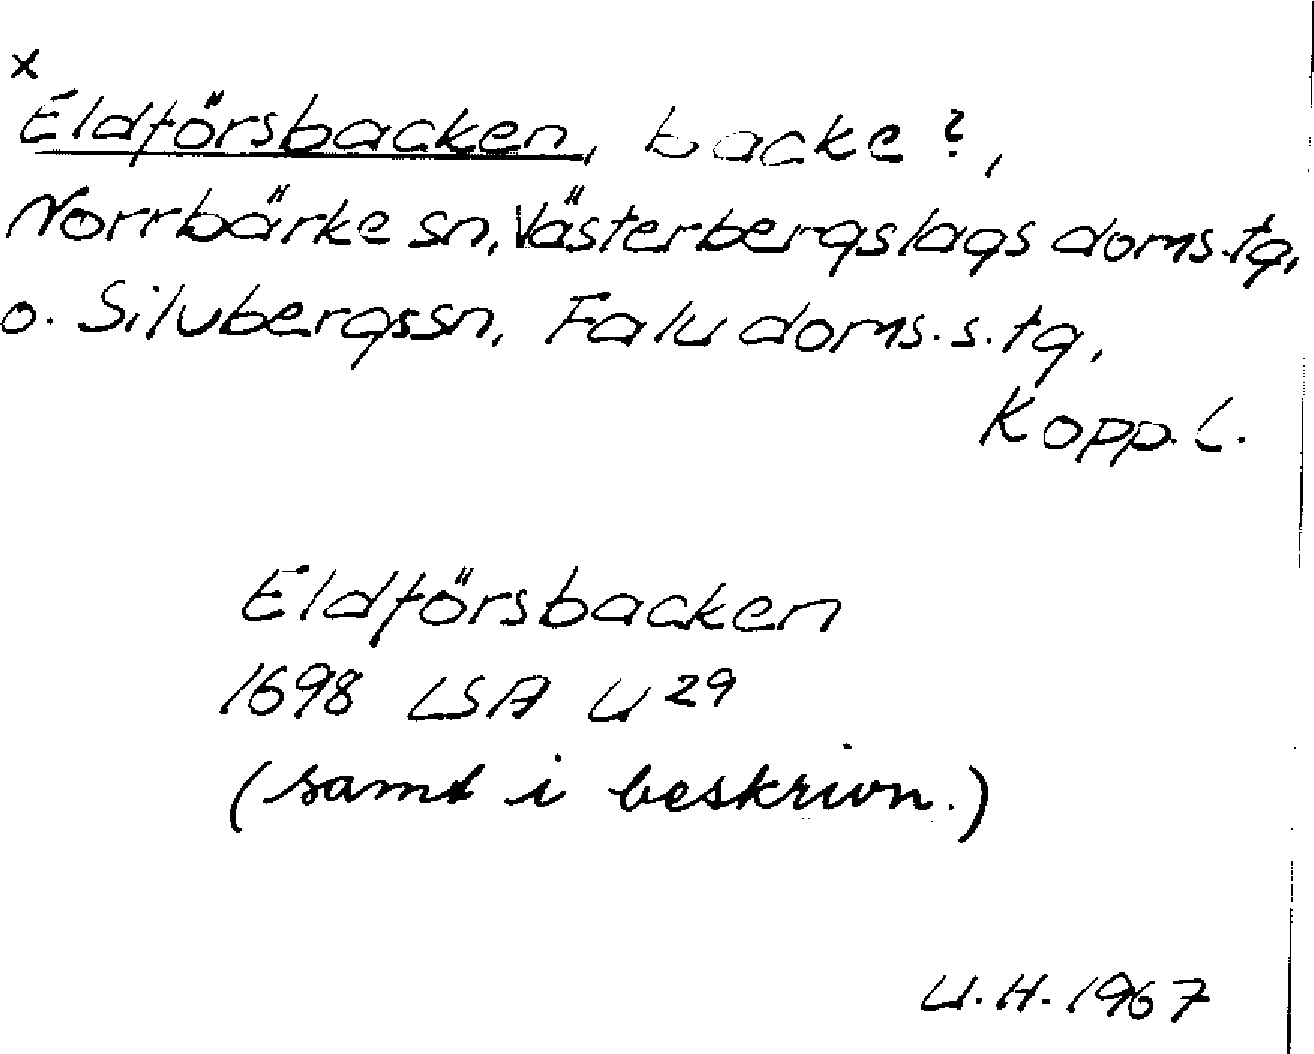 x
Eldförsbacken, backe?,
Norrbärke sn, Västerbergslags doms.tg,
o. Silvbergssn, Falu doms.s.tg,
Kopp.l.
Eldförsbacken
1698 LSA U 29
(samt i beskrivn.)
U.H. 1967